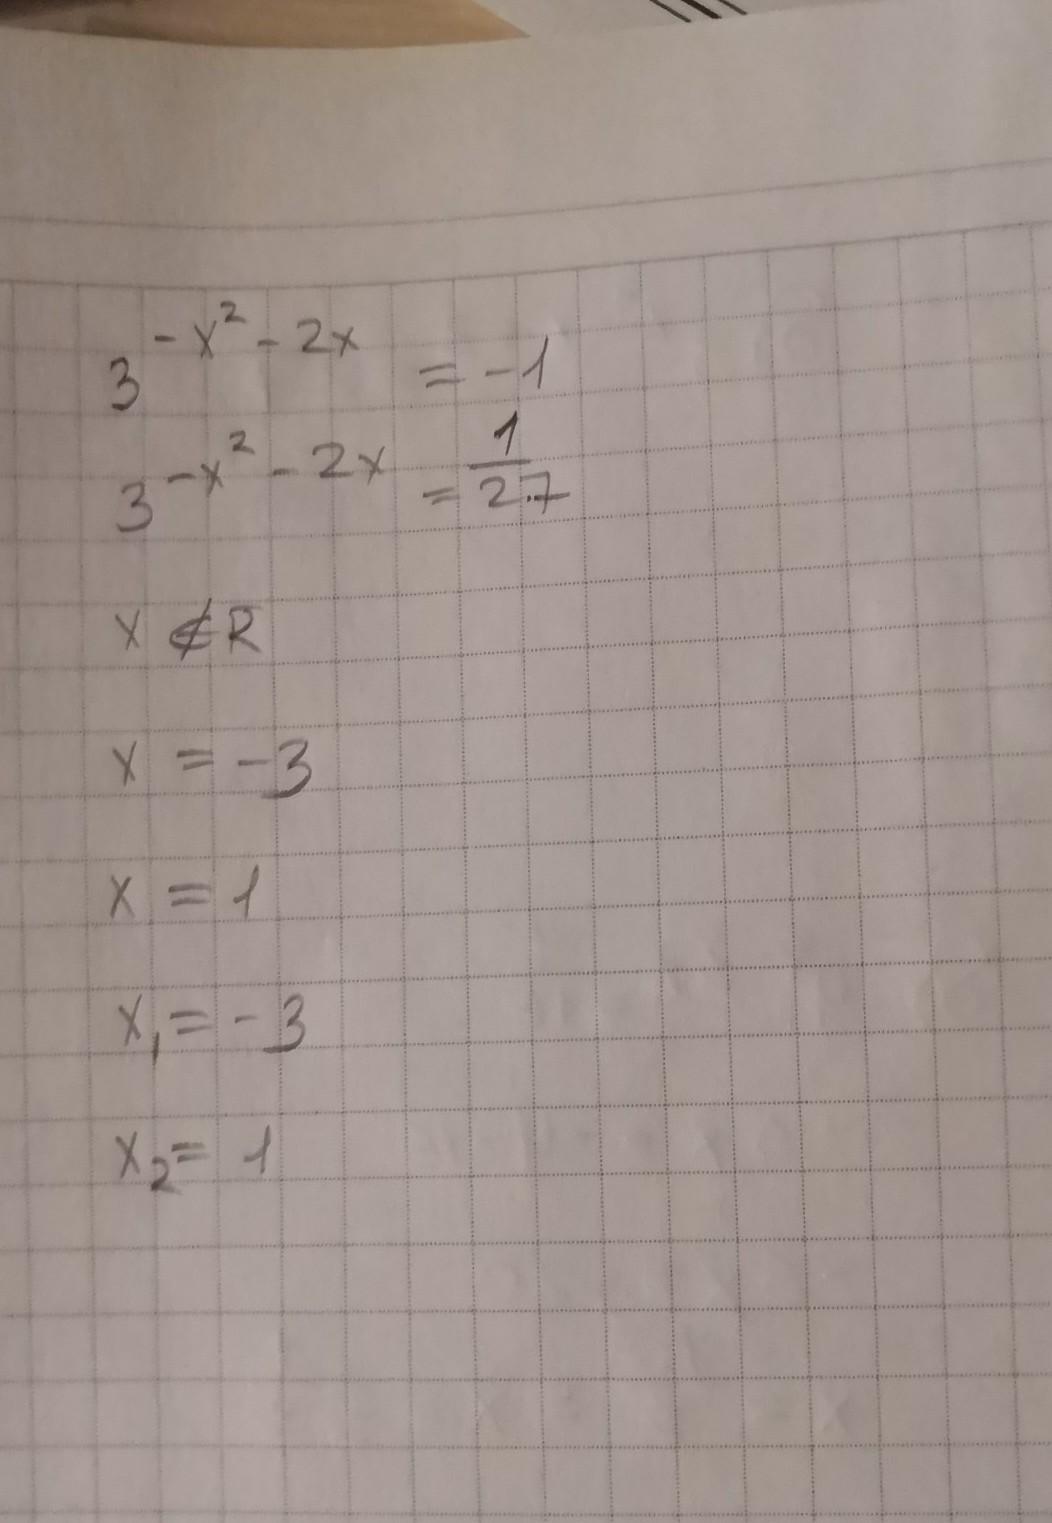 3^{-x² - 2x} = -1
3^{-x² - 2x} = 1/27
x ∉ R
x = -3
x = 1
x₁ = -3
x₂ = 1